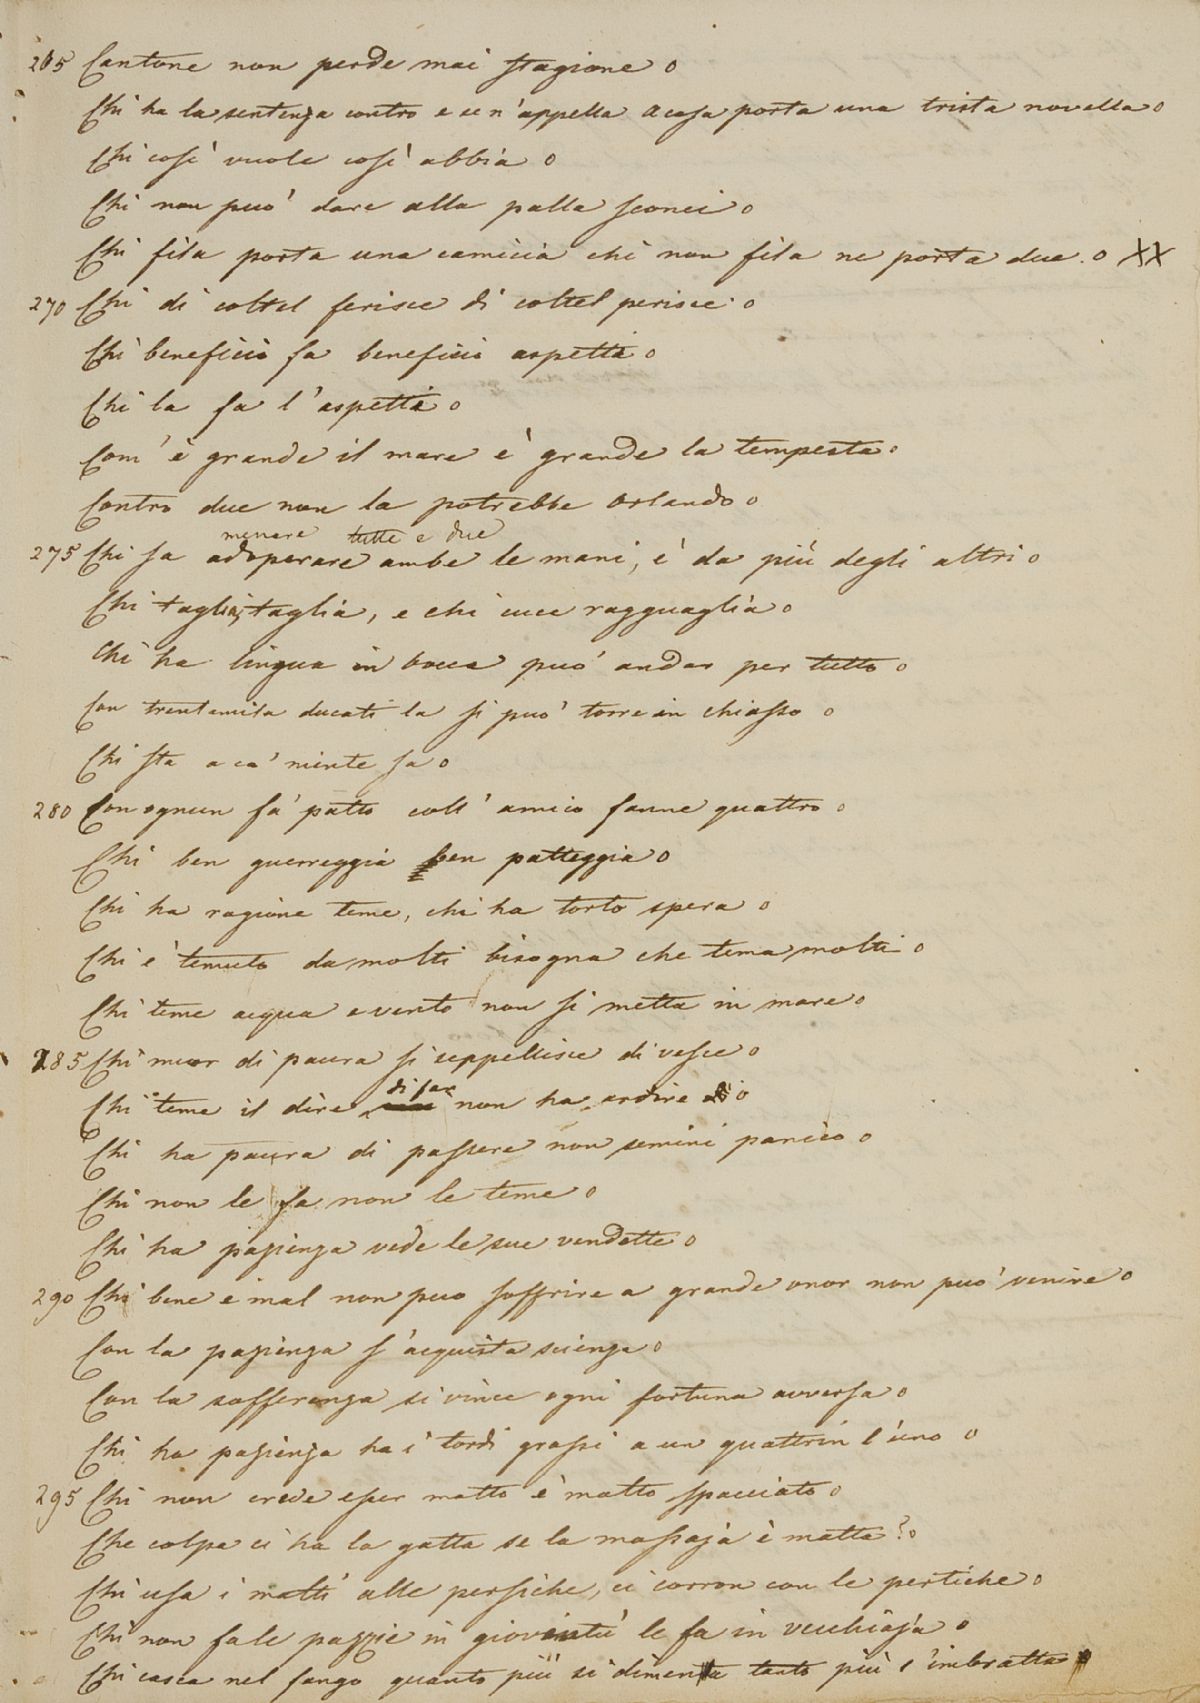 265 Cantone non perde mai stagione o
Chi ha la sentenza contro e se n'appella a casa porta una trista novella o
Chi così vuole così abbia o
Chi non può dare alla palla sconci o
Chi fila porta una camicia chi non fila ne porta due. o XX
270 Chi di coltel ferisce di coltel perisce. o
Chi beneficio fa beneficio aspetta o
Chi la fa l'aspetti o
Com'è grande il mare è grande la tempesta o
Contro due non la potrebbe Orlando o
menare tutte e due
275 Chi sa adoperare ambe le mani, è da più degli altri o
Chi taglia, taglia, e chi cuce ragguaglia o
Chi ha lingua in bocca può andar per tutto o
Con trentamila ducati la si può torre in chiasso o
Chi sta a ca' niente sa o
280 Con ognun fa' patto coll'amico fanne quattro o
Chi ben guerreggia ben patteggia o
Chi ha ragione teme, chi ha torto spera o
Chi è temuto da molti bisogna che tema molti o
Chi teme acqua e vento non si metta in mare o
285 Chi muor di paura si seppellisce di vesce o
di far
Chi teme il dire non ha ardire o
Chi ha paura di passere non semini panico o
Chi non le fa non le teme o
Chi ha pazienza vede le sue vendette o
290 Chi bene e mal non puo soffrire a grande onor non può venire o
Con la pazienza s'acquista scienza o
Con la sofferenza si vince ogni fortuna avversa o
Chi ha pazienza ha i tordi grassi a un quattrin l'uno o
295 Chi non crede esser matto è matto spacciato o
Che colpa ci ha la gatta se la massaja è matta? o
Chi usa i matti alle persiche, ci corron con le pertiche o
Chi non fa le pazzie in gioventù le fa in vecchiaja o
Chi casca nel fango quanto più si dimena tanto più s'imbratta